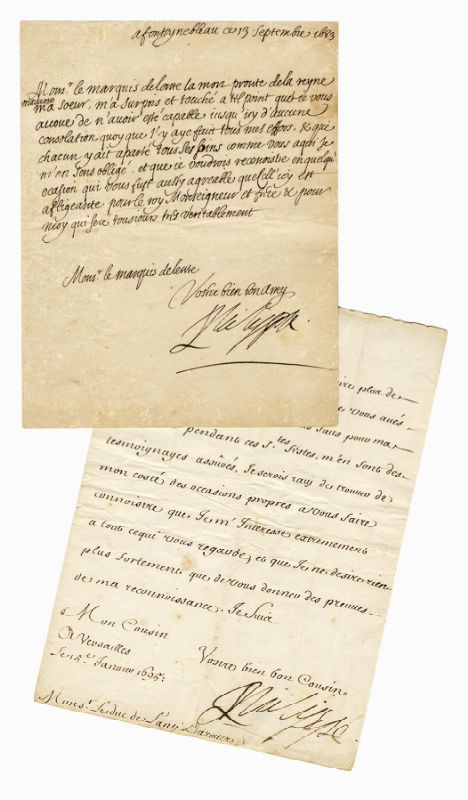 a fontaynebleau ce 13 Septembre 1683
Mons.r le marquis de leuse la mort pronte de la reyne
madame
ma soeur, m'a surpris et touché a tel point que ie vous
avoue de n'avoir esté capable iusqu'icy d'aucune
consolation quoy que i'y aye fait tous mes effors, & que
chacun y ait aporté tous ses soins comme vous aqui ie
m'en sens obligé, et que ie voudrois reconoistre en quelqu
ocasion qui vous fust aussy agreable que cell'icy est
afligeante pour le roy Monseigneur et frere & pour
moy qui sera tousiours tres veritablement
Mons.r le marquis de leuse
Vostre bien bon amy
Philippe
plus de
Vous avés
pour ma
pendant ces S.tes festes, m'en sont des
tesmoignages assurés, Je serois ravy de trouver de
mon costé des occasions propres a vous faire
connoistre que Je m'Interesse extremement
a tout ce qui vous regarde, et que Je ne desire rien
plus fortement que de vous donner des preuves
de ma reconnoissance. Je suis
Mon Cousin
A Versailles
le 15.e Janvier 1695.
Vostre bien bon Cousin
Philippe
Mons.r le duc de Santi